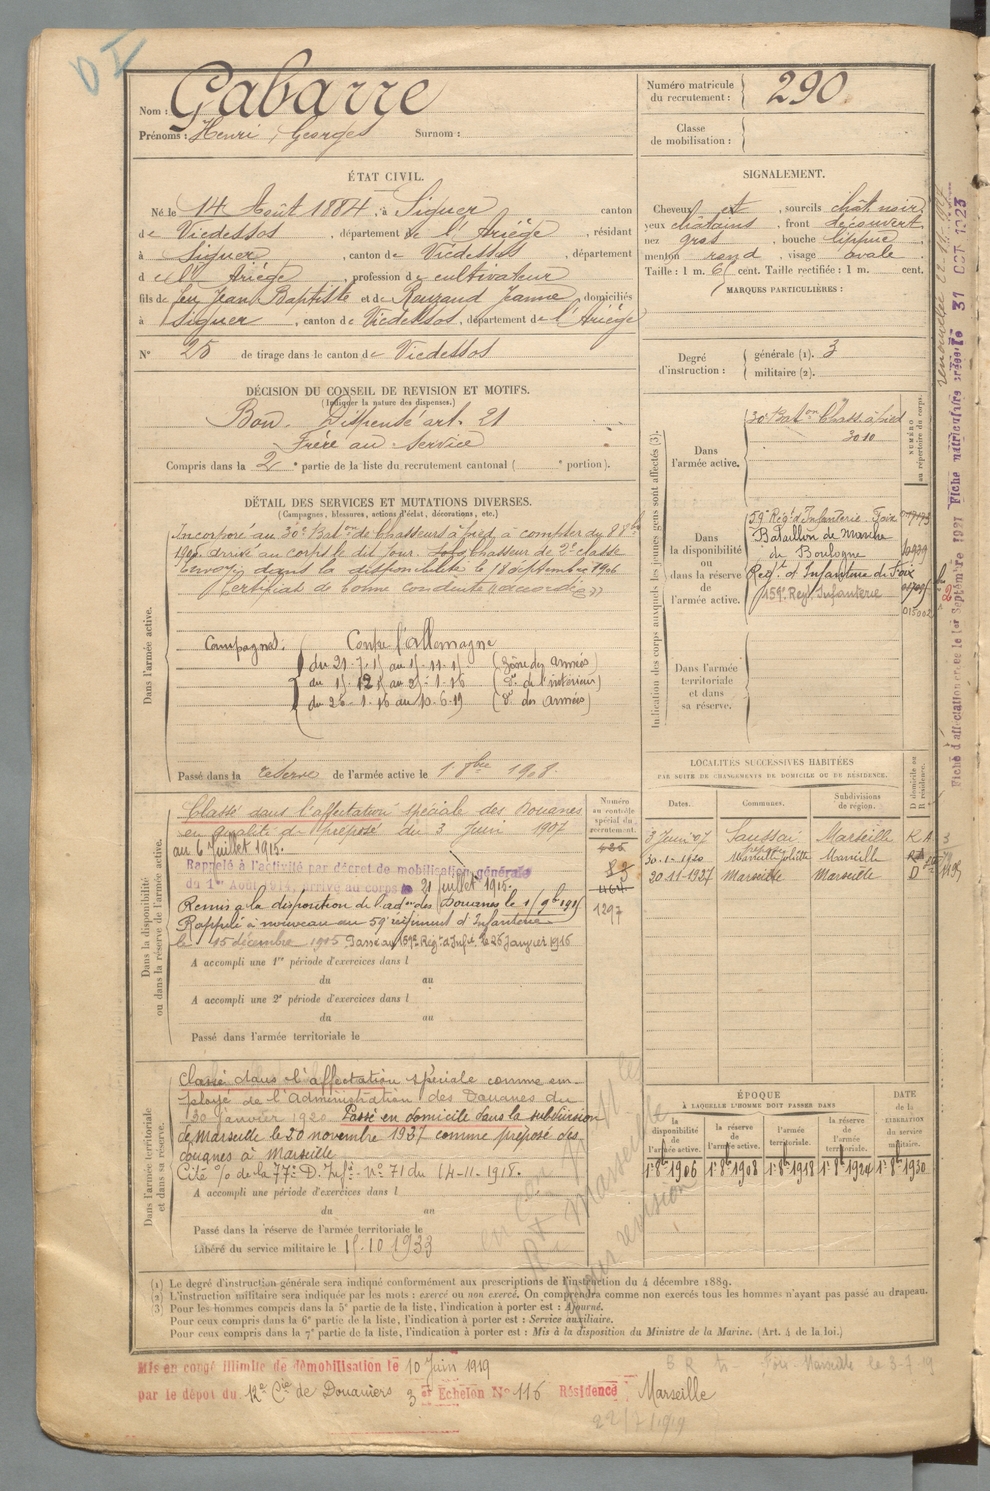 Nom : Gabarre
Prénoms : Henri, Georges Surnom :
Numéro matricule du recrutement : 290
Classe de mobilisation :
ÉTAT CIVIL.
Né le 14 Août 1884, à Siguer canton
de Vicdessos, département de l'Ariège, résidant
à Siguer, canton de Vicdessos, département
de l'Ariège, profession de cultivateur
fils de feu Jean Baptiste et de Rouzaud Jeanne, domiciliés
à Siguer, canton de Vicdessos, département de l'Ariège
N° 25 de tirage dans le canton de Vicdessos
SIGNALEMENT.
Cheveux et, sourcils chât noir
yeux châtains, front découvert
nez gros, bouche lippue
menton rond, visage ovale
Taille : 1 m. 6 cent. Taille rectifiée : 1 m. cent.
MARQUES PARTICULIÈRES :
Degré d'instruction :
générale (1). 3
militaire (2).
DÉCISION DU CONSEIL DE REVISION ET MOTIFS.
(Indiquer la nature des dispenses.)
Bon. Dispensé art. 21
Frère au Service
Compris dans la 2e partie de la liste du recrutement cantonal ( e portion).
DÉTAIL DES SERVICES ET MUTATIONS DIVERSES.
(Campagnes, blessures, actions d'éclat, décorations, etc.)
Dans l'armée active.
Incorporé au 30e Baton de Chasseurs à pied à compter du 8 8bre
1905 arrivé au corps le dit jour. Chasseur de 2e classe
Envoyé dans la disponibilité le 18 septembre 1906
Certificat de bonne conduite "accordé"
Campagnes : Contre l'Allemagne
(Zône des armées)
(do de l'intérieur)
du 26-1-16 au 10-6-19 (do des armées)
Passé dans la réserve de l'armée active le 1 8bre 1908.
Indication des corps auxquels les jeunes gens sont affectés (3).
NUMÉRO au répertoire du corps.
Dans l'armée active.
30e Baton Chass. à pied
3010
Dans la disponibilité ou dans la réserve de l'armée active.
59e Régt d'Infanterie Foix
Bataillon de Marche
du Boulogne
Regt d'Infanterie de Foix
159e Regt Infanterie
Dans l'armée territoriale et dans sa réserve.
LOCALITÉS SUCCESSIVES HABITÉES
PAR SUITE DE CHANGEMENTS DE DOMICILE OU DE RÉSIDENCE.
Dates. Communes. Subdivisions de région. D domicile ou R résidence.
3 Juin 07 Saussai Marseille R A
30-1-1920 Marseille Joliette Marseille
20-11-1927 Marseille Marseille D
Dans la disponibilité ou dans la réserve de l'armée active.
Numéro au contrôle spécial du recrutement.
1297
Classé dans l'affectation spéciale des Douanes
en qualité de préposé du 3 Juin 1907
au 6 Juillet 1915.
Rappelé à l'activité par décret de mobilisation générale
du 1er Août 1914, arrivé au corps le 21 juillet 1915.
Remis à la disposition de l'adon des Douanes le
Rappelé à nouveau au 59e régiment d'Infanterie
le 15 décembre 1915 Passé au 159e Régt d'Infie le 26 Janvier 1916
A accompli une 1re période d'exercices dans l
du au
A accompli une 2e période d'exercices dans l
du au
Passé dans l'armée territoriale le
Dans l'armée territoriale et dans sa réserve.
Classé dans l'affectation spéciale comme em-
ployé de l'Administration des Douanes du
30 janvier 1920. Passé en domicile dans la subdivision
de Marseille le 20 novembre 1927 comme préposé des
douanes à Marseille
Cité % de la 77e D. Infie No 71 du 14-11-1918.
A accompli une période d'exercices dans l
du au
Passé dans la réserve de l'armée territoriale le
Libéré du service militaire le 15.10 1933
ÉPOQUE
À LAQUELLE L'HOMME DOIT PASSER DANS
la disponibilité de l'armée active. la réserve de l'armée active. l'armée territoriale. la réserve de l'armée territoriale. DATE de la LIBÉRATION du service militaire.
1er 8bre 1906 1er 8bre 1908 1er 8bre 1918 1er 8bre 1924 1er 8bre 1930
(1) Le degré d'instruction générale sera indiqué conformément aux prescriptions de l'instruction du 4 décembre 1889.
(2) L'instruction militaire sera indiquée par les mots : exercé ou non exercé. On comprendra comme non exercés tous les hommes n'ayant pas passé au drapeau.
(3) Pour les hommes compris dans la 5e partie de la liste, l'indication à porter est : Ajourné.
Pour ceux compris dans la 6e partie de la liste, l'indication à porter est : Service auxiliaire.
Pour ceux compris dans la 7e partie de la liste, l'indication à porter est : Mis à la disposition du Ministre de la Marine. (Art. 4 de la loi.)
Mis en congé illimité de démobilisation le 10 Juin 1919
par le dépôt du 12e Cie de Douaniers 3e Echelon No 116 Résidence Marseille
22/7/1919
Fiche d'affectation créée le 1er Septembre 1927 Fiche matriculaire créée le 31 OCT 1923